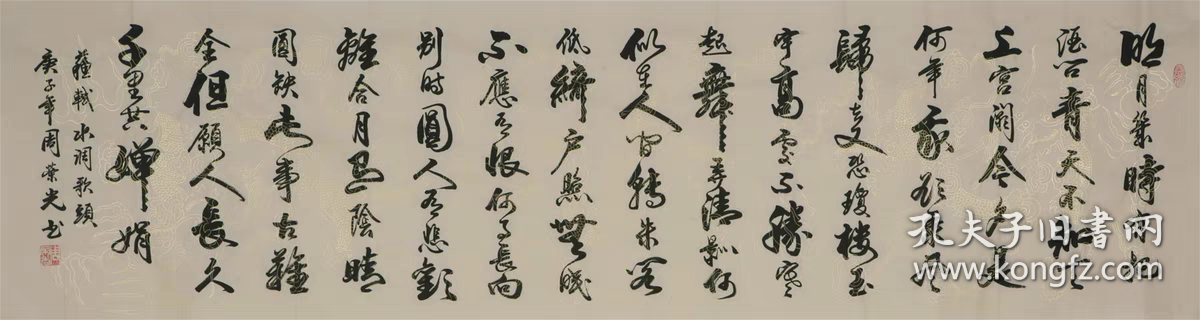 明月幾時有把
酒問青天不知天
上宮闕今夕是
何年我欲乘風
歸去又恐瓊樓玉
宇高處不勝寒
起舞弄清影何
似在人間轉朱閣
低綺戶照無眠
不應有恨何事長向
别時圓人有悲歡
離合月有陰晴
圓缺此事古難
全但願人長久
千里共嬋娟
蘇軾水調歌頭
庚子年周榮光书
孔夫子旧书网
www.kongfz.com